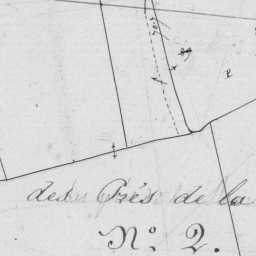 des Prés de la
N.º 2.